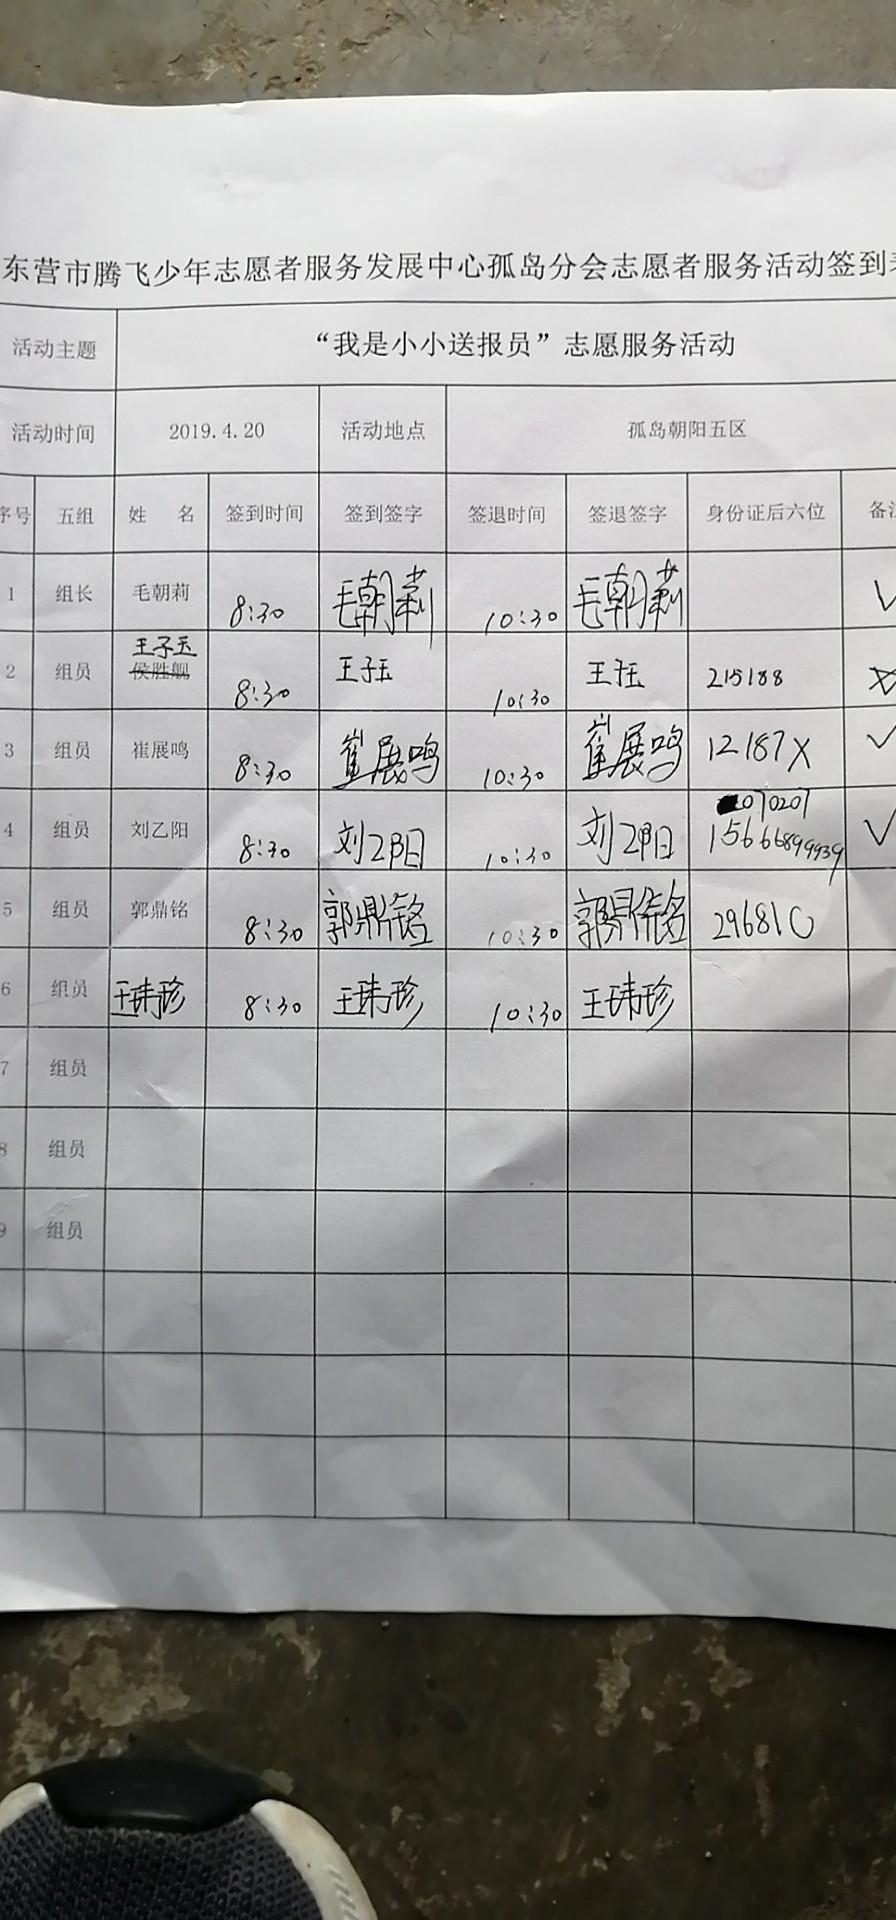 东营市腾飞少年志愿者服务发展中心孤岛分会志愿者服务活动签到
活动主题 “我是小小送报员”志愿服务活动
活动时间 2019.4.20 活动地点 孤岛朝阳五区
序号 五组 姓 名 签到时间 签到签字 签退时间 签退签字 身份证后六位 备注
1 组长 毛朝莉 8:30 毛朝莉 10:30 毛朝莉
王子玉
2 组员 侯胜舰 8:30 王子玉 10:30 王子玉 215188
3 组员 崔展鸣 8:30 崔展鸣 10:30 崔展鸣 12187X
070207
4 组员 刘乙阳 8:30 刘乙阳 10:30 刘乙阳 15666899939
5 组员 郭鼎铭 8:30 郭鼎铭 10:30 郭鼎铭 29681
6 组员 王玮珍 8:30 王玮珍 10:30 王玮珍
7 组员
8 组员
9 组员